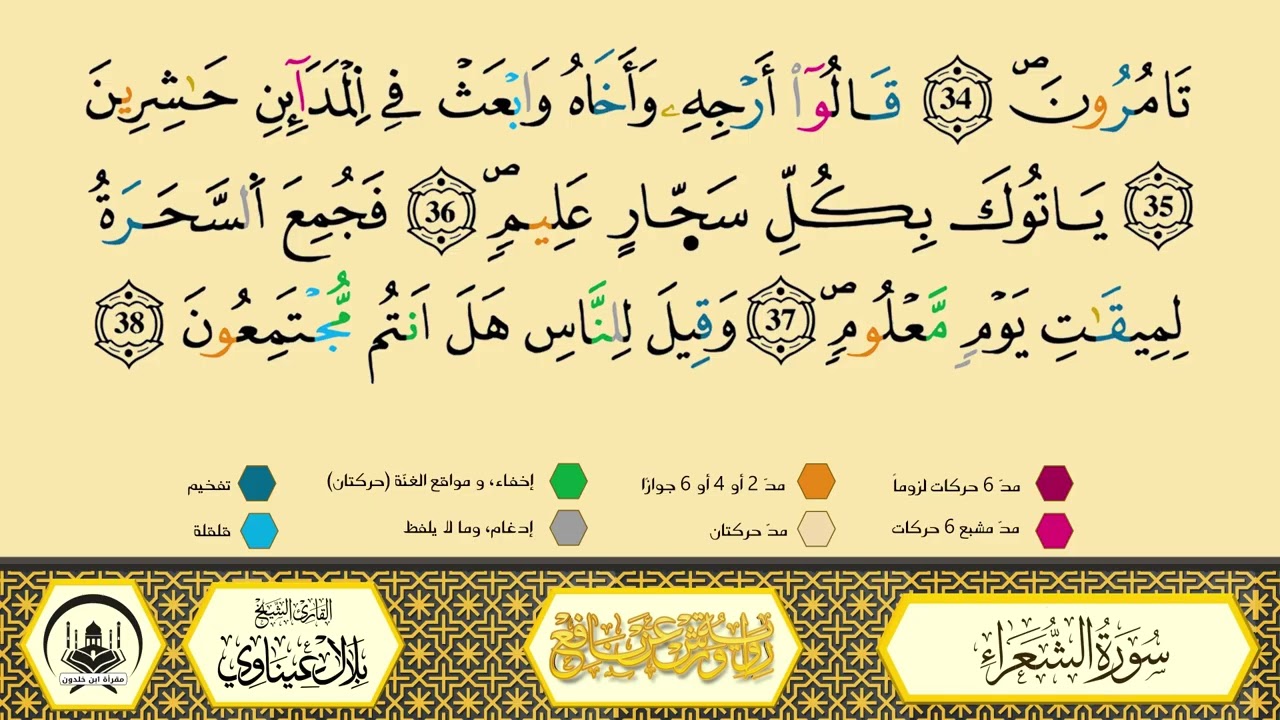 تَامُرُونَۖ 34 قَالُوٓاْ أَرْجِهِۦ وَأَخَاهُ وَابْعَثْ فِے اِ۬لْمَدَآئِنِ حَٰشِرِينَ
35 يَاتُوكَ بِكُلِّ سَحّ۪ارٍ عَلِيمٖۖ 36 فَجُمِعَ اَ۬لسَّحَرَةُ
لِمِيقَٰتِ يَوْمٖ مَّعْلُومٖۖ 37 وَقِيلَ لِلنَّاسِ هَلَ اَنتُم مُّجْتَمِعُونَ 38
مدّ 6 حركات لزوماً مدّ 2 أو 4 أو 6 جوازًا إخفاء، و مواقع الغنّة (حركتان) تفخيم
مدّ مشبع 6 حركات مدّ حركتان إدغام، وما لا يلفظ قلقلة
سُورَةُ الشُّعَرَاءِ
رواية ورش عن نافع
القارئ الشيخ
بلال عيناوي
مقرأة ابن خلدون